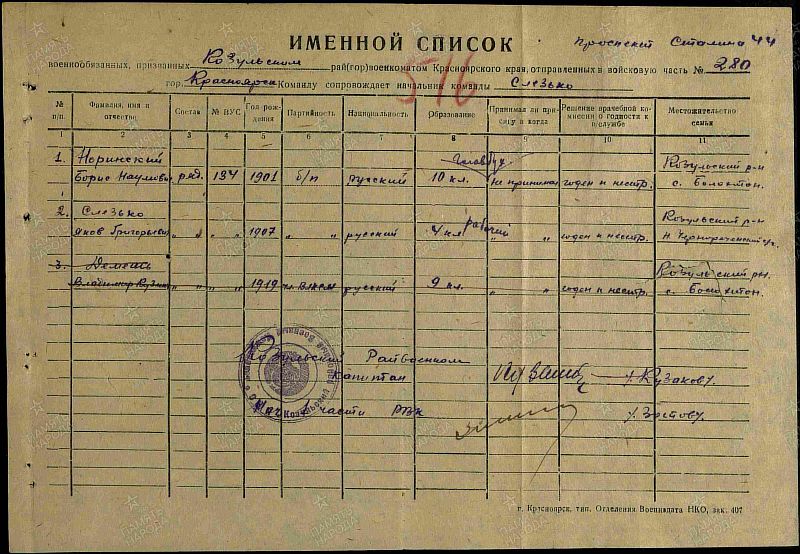 ИМЕННОЙ СПИСОК
проспект Сталина 44
военнообязанных, призванных Козульском рай(гор)военкоматом Красноярского края, отправленных в войсковую часть № 280
гор. Красноярск Команду сопровождает начальник команды Слезько
516
№ п/п. Фамилия, имя и отчество Состав № ВУС Год рождения Партийность Национальность Образование Принимал ли присягу и когда Решение врачебной комиссии о годности к в/службе Местожительство семьи
1 2 3 4 5 6 7 8 9 10 11
1. Норинский Козульский р-н
Борис Наумович ряд. 134 1901 б/п русский 10 кл. не принимал годен к нестр. с.
2. Слезько рабочий Козульский р-н
Яков Григорьевич " " 1907 " " русский 4 кл. " " годен к нестр.
3. Козульский рн.
Владимир " " 1919 русский 9 кл. " " годен к нестр. с.
Козульский Райвоенком
Капитан /Кузаков/.
Нач. части РВК /Зотов/.
г. Красноярск, тип. Отделения Воениздата НКО, зак. 407
ПАМЯТЬ НАРОДА